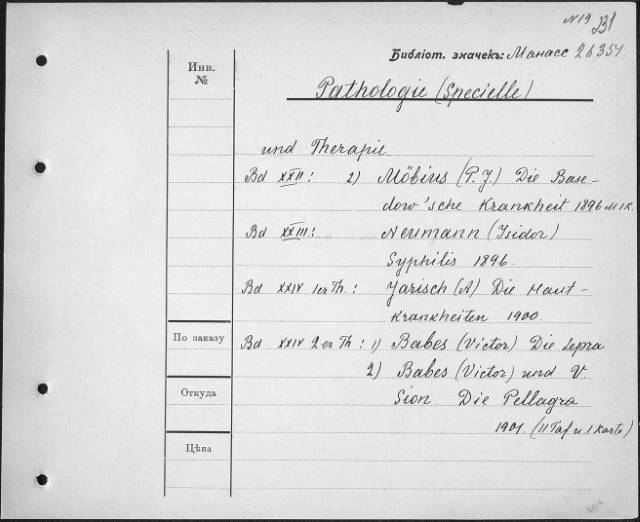 N 19
Библіот. значекъ: Манасс 26351.
Инв.
№
Pathologie (Specielle)
und Therapie.
Bd XXII: 2) Möbius (P. J) Die Base-
dow'sche Krankheit 1896
Bd XXIII: Neumann (Isidor)
Syphilis 1896.
Bd XXIV 1er Th.: Jarisch (A) Die Haut-
krankheiten 1900.
По заказу
Bd XXIV 2er Th: 1) Babes (Victor) Die Lepra
2) Babes (Victor) und V
Откуда
Sion Die Pellagra
1901 (11 Taf u. 1 Karte)
Цѣна